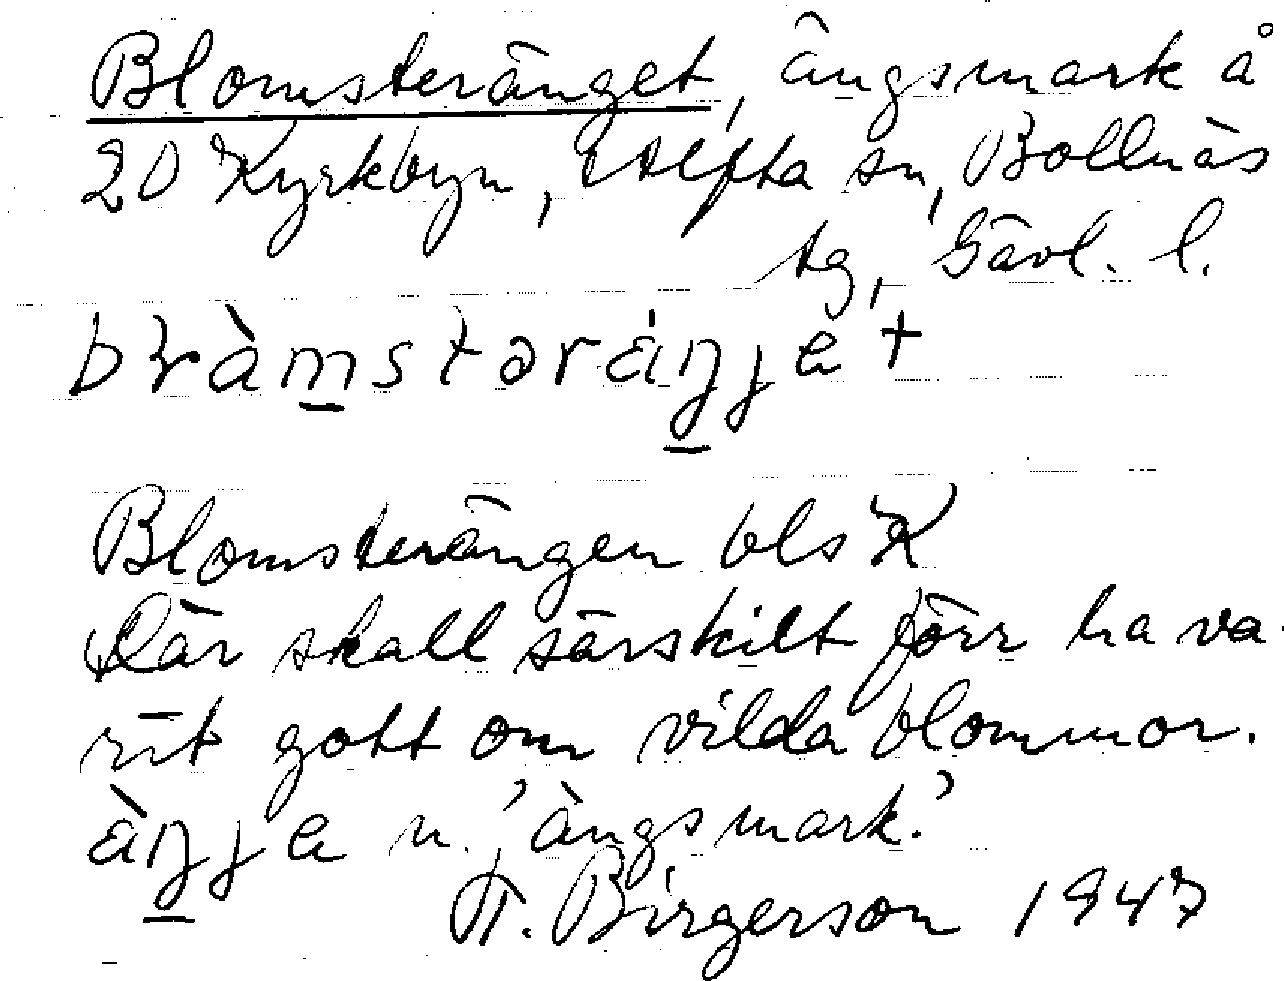 Blomsteränget, ängsmark å
20 Kyrkbyn, Alfta sn, Bollnäs
tg, Gävl. l.
Blomsterängen bls K
Där skall särskilt förr ha va-
rit gott om vilda blommor.
n. 'ängsmark.'
T. Birgerson 1947